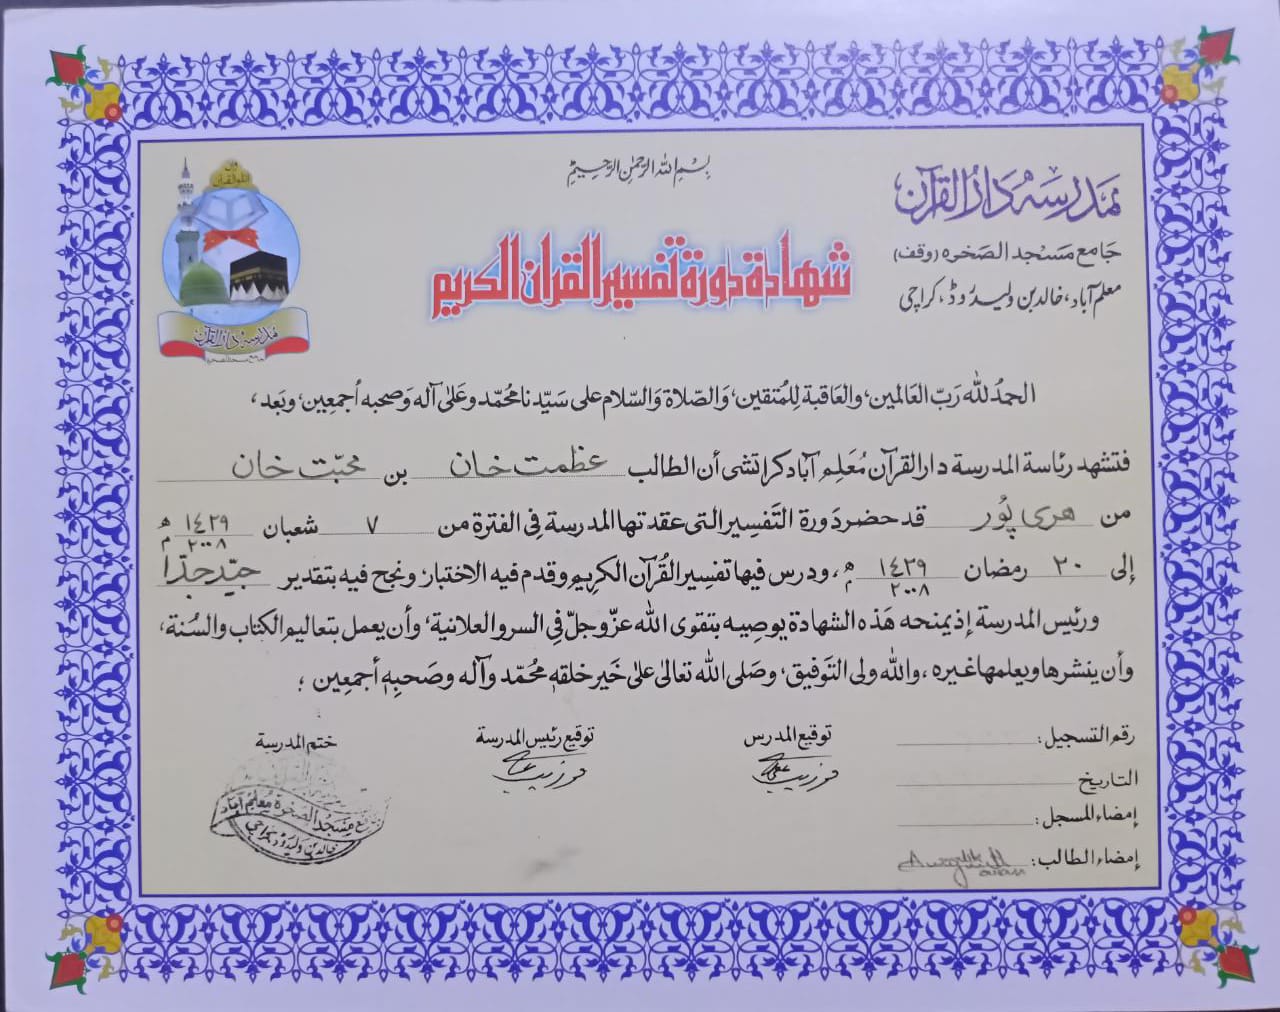 بِسْمِ اللهِ الرَّحْمٰنِ الرَّحِيْمِ
مَدرسہ دَارُ القرآن
جَامع مَسْجد الصَخرہ (وقف)
معلم آباد، خالد بن ولید روڈ، کراچی
وان اتلوا القرآن
مدرسہ دار القرآن
جامع مسجد الصخرہ
شهادة دورة تفسير القران الكريم
الحمدُ لله رَبّ العَالمين، والعَاقبة لِلمُتقين، وَالصّلاة وَالسّلام على سَيّدنا محُمّد وعَلىٰ آله وَصحبه أجمعِين، وبَعد،
فتشهد رئاسة المدرسة دار القرآن مُعَلِم آباد كراتشى أن الطالب عظمت خان بن محبّت خان
من هری پُور قد حضر دَورة التَفسِير التى عقدتها المدرسة فِى الفترة من ٧ شعبان ١٤٢٩ھ ٢٠٠٨م
إلى ٢٠ رمضان ١٤٢٩ھ ٢٠٠٨م، ودرس فيها تفسِير القُرآن الكريم وقدم فيه الاختبار، ونجح فيه بتقدير جيّد جدًا
ورئيس المدرسة إذ يمنحه هَذه الشهادة يوصِيه بتقوى الله عزّ وجلّ فِى السر والعلانية، وأن يعمل بتعاليم الكتاب والسُنة،
وأن ينشرها ويعلمها غيره، والله ولى التَوفيق، وصَلى الله تعالىٰ علىٰ خَير خلقهٖ محُمّد وآله وصَحبِهٖ أجمعِين؛
رقم التسجيل:
التاريخ
إمضاء المسجل:
إمضاء الطالب:
توقيع المدرس
توقيع رئيس المدرسة
ختم المدرسة
جامع مَسْجدُ الصَخرة مُعلم آباد
خالد بن ولید روڈ کراچی